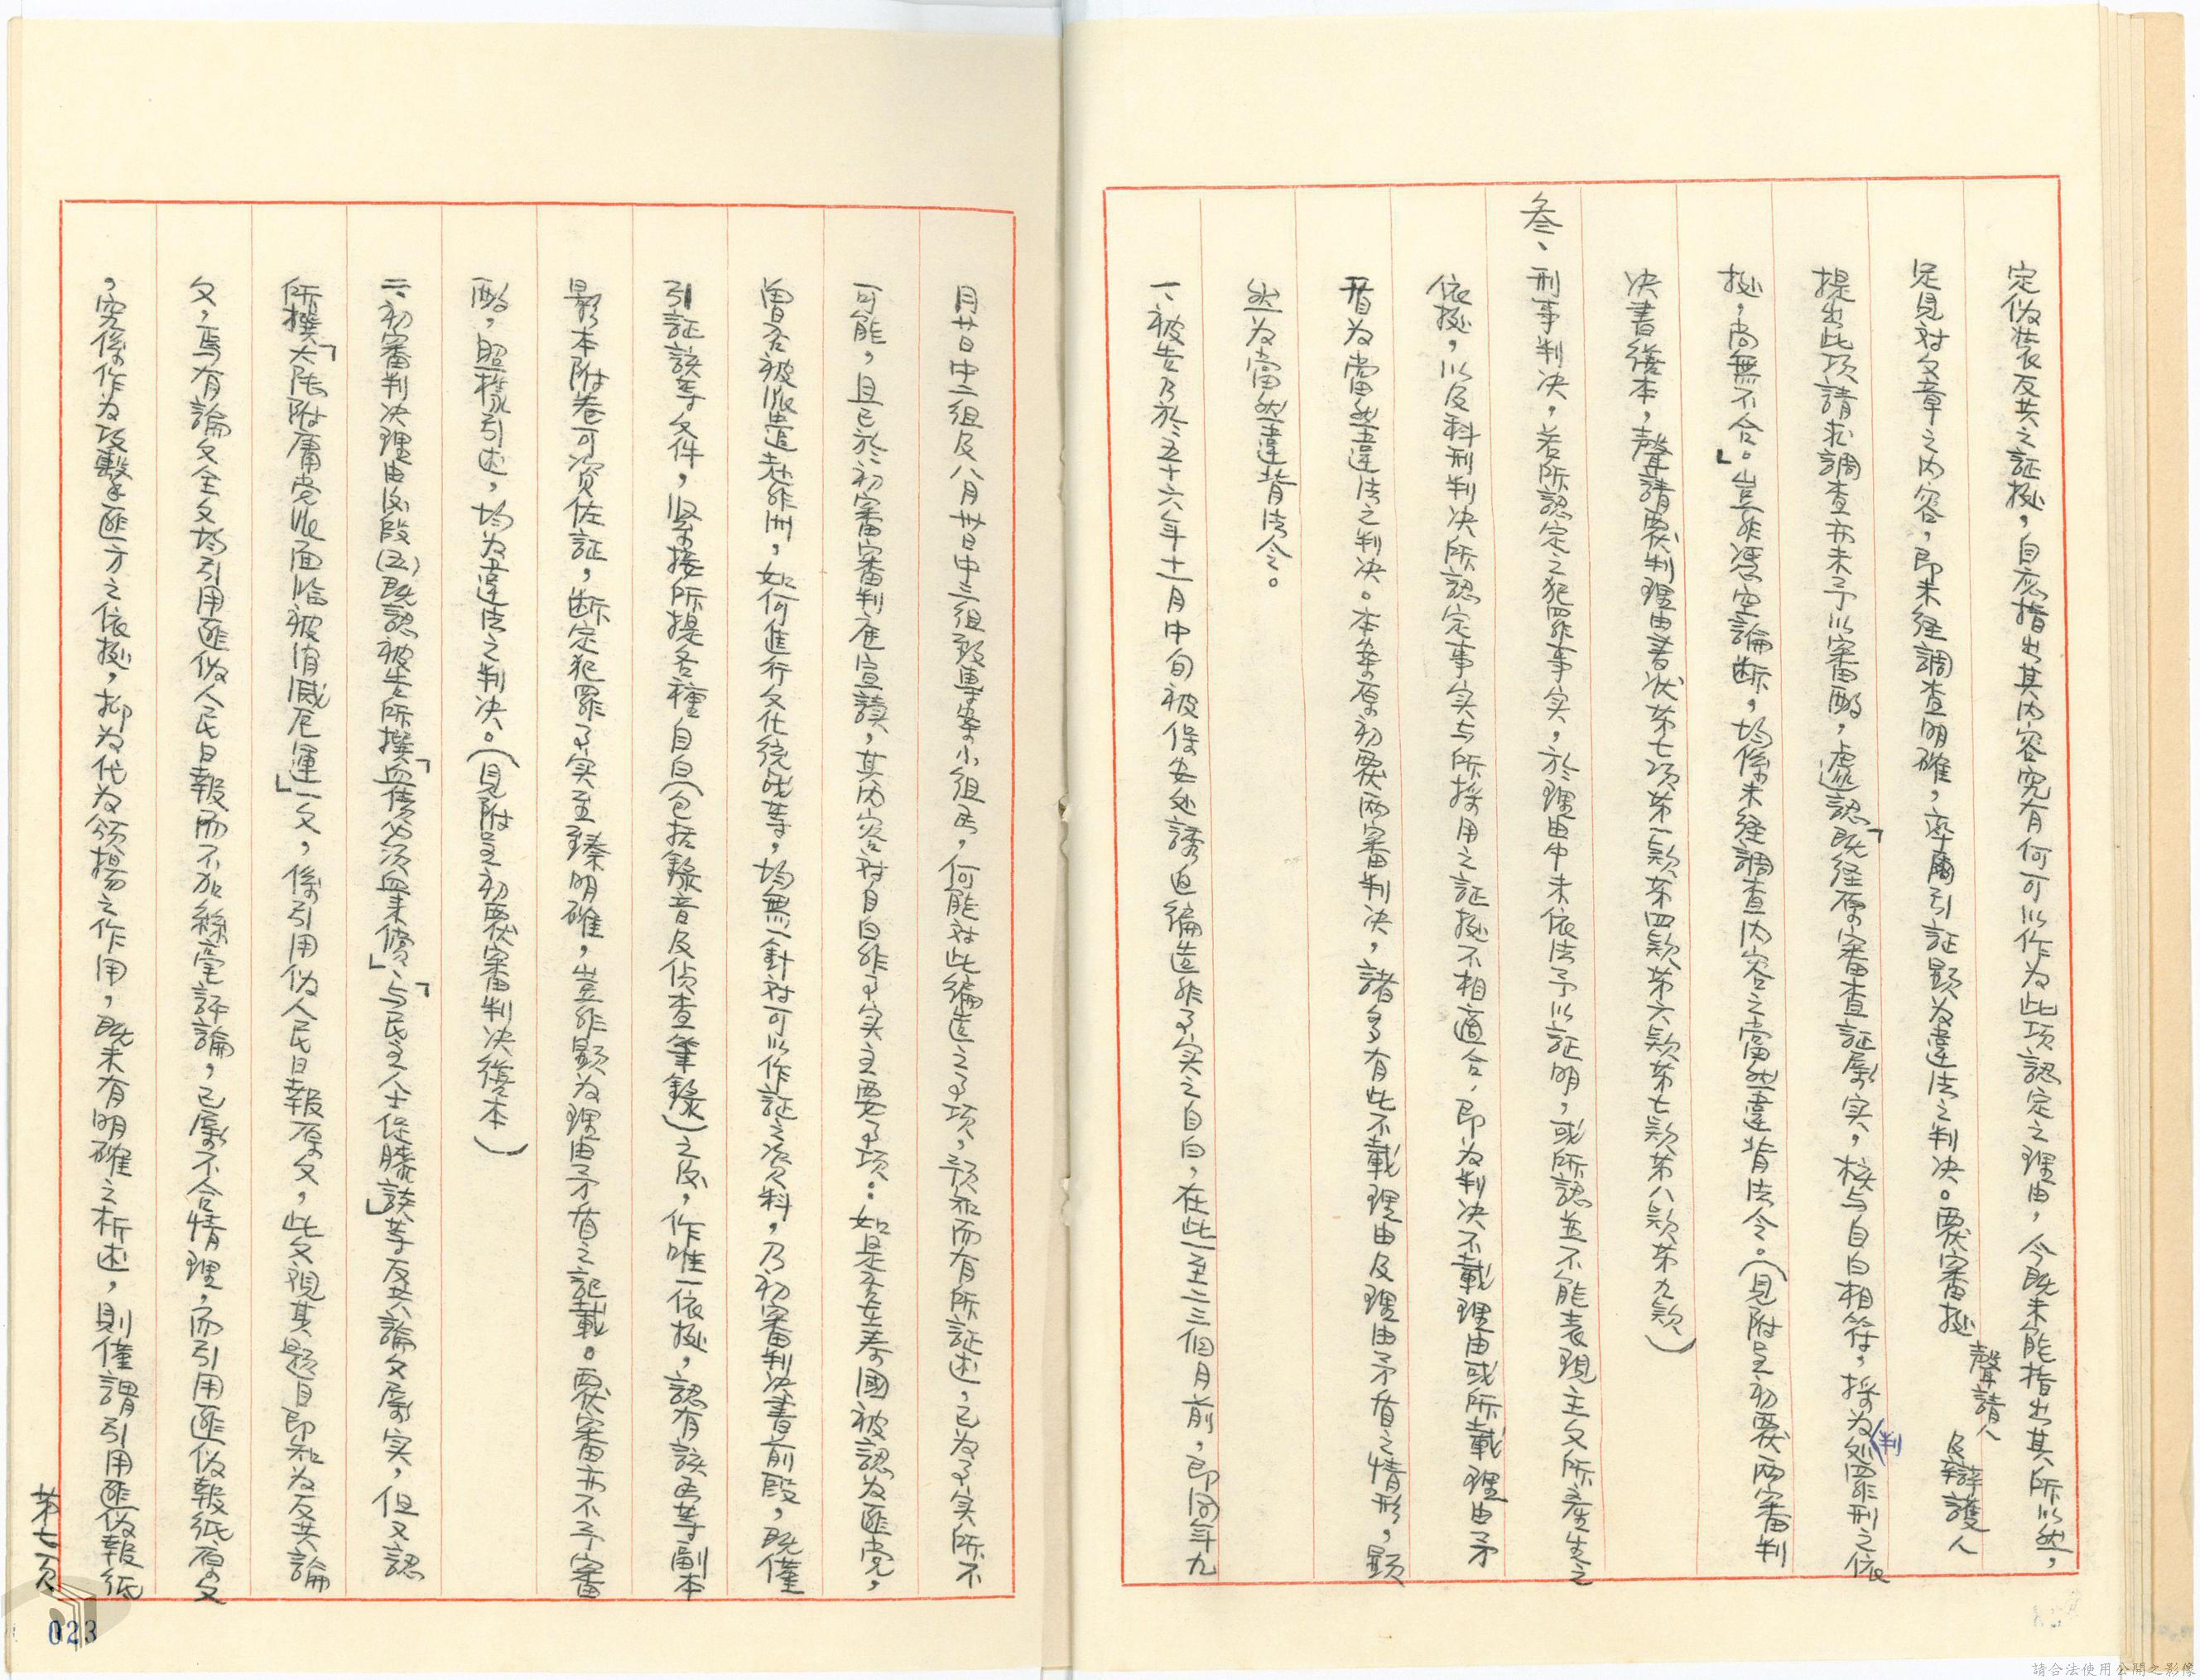 定偽裝反共之証據，自應指出其內容究有何可以作為此項認定之理由，今既未能指出其所以然，
足見対文章之內容，即未经調查明確，率爾引証顯為違法之判决。覆審據聲請人及辯護人
提出此項請求調查亦未予以審酌，虛認「既经原審查証屬实，核与自白相符，採為(判)処罪刑之依
據，尚無不合。」豈非憑空論断，均係未経調查內容之當然違背法令。(見附呈初覆两審判
决書繕本，聲請覆判理由書状苐七項苐一款苐四款苐六款苐七款苐八款苐九款)
叁、刑事判决，若所認定之犯罪事实，於理由中未依法予以証明，或所認並不能表現主文所產生之
依據，以及科刑判决所認定事实与所採用之証據不相適合，即为判决不載理由或所載理由矛
盾为當然違法之判决。本案原初覆两審判决，諸多有此不載理由及理由矛盾之情形，顯
然为當然違背法令。
一、被告乃於五十六年十一月中旬被保安处誘迫編造非事实之自白，在此一至二三個月前，即同年九
月廿日中二組及八月卅日中三組致專案小組函，何能対此編造之事項，預知而有所証述，已为事实所不
可能，且已於初審審判庭宣讀，其內容対自白非事实主要事項：如是否在泰國被認为匪党，
曾否被派遣赴非洲，如何進行文化統战等，均無一針対可以作証之资料，乃初審判决書前段，既僅
引証該等文件，緊接所提各種自白(包括錄音及偵查筆錄)之後，作唯一依據，認有該函等副本
影本附卷可资佐証，断定犯罪事实至臻明確，豈非顯为理由矛盾之記載。覆審亦不予審
酌，照樣引述，均为違法之判决。(見附呈初覆審判决繕本)
二、初審判决理由後段(五)既認被告所撰「血债必须血来償」与「民主人士促膝談」等反共論文屬实，但又認
所撰「大陸附庸党派面临被消滅厄運」一文，係引用偽人民日報原文，此文視其題目即知为反共論
文，焉有論文全文均引用匪偽人民日報而不加絲毫評論，已屬不合情理，而引用匪偽報纸原文
，究係作为攻擊匪方之依據，抑为代为頌揚之作用，既未有明確之析述，則僅謂引用匪偽報纸
苐七頁
023
請合法使用公開之影像